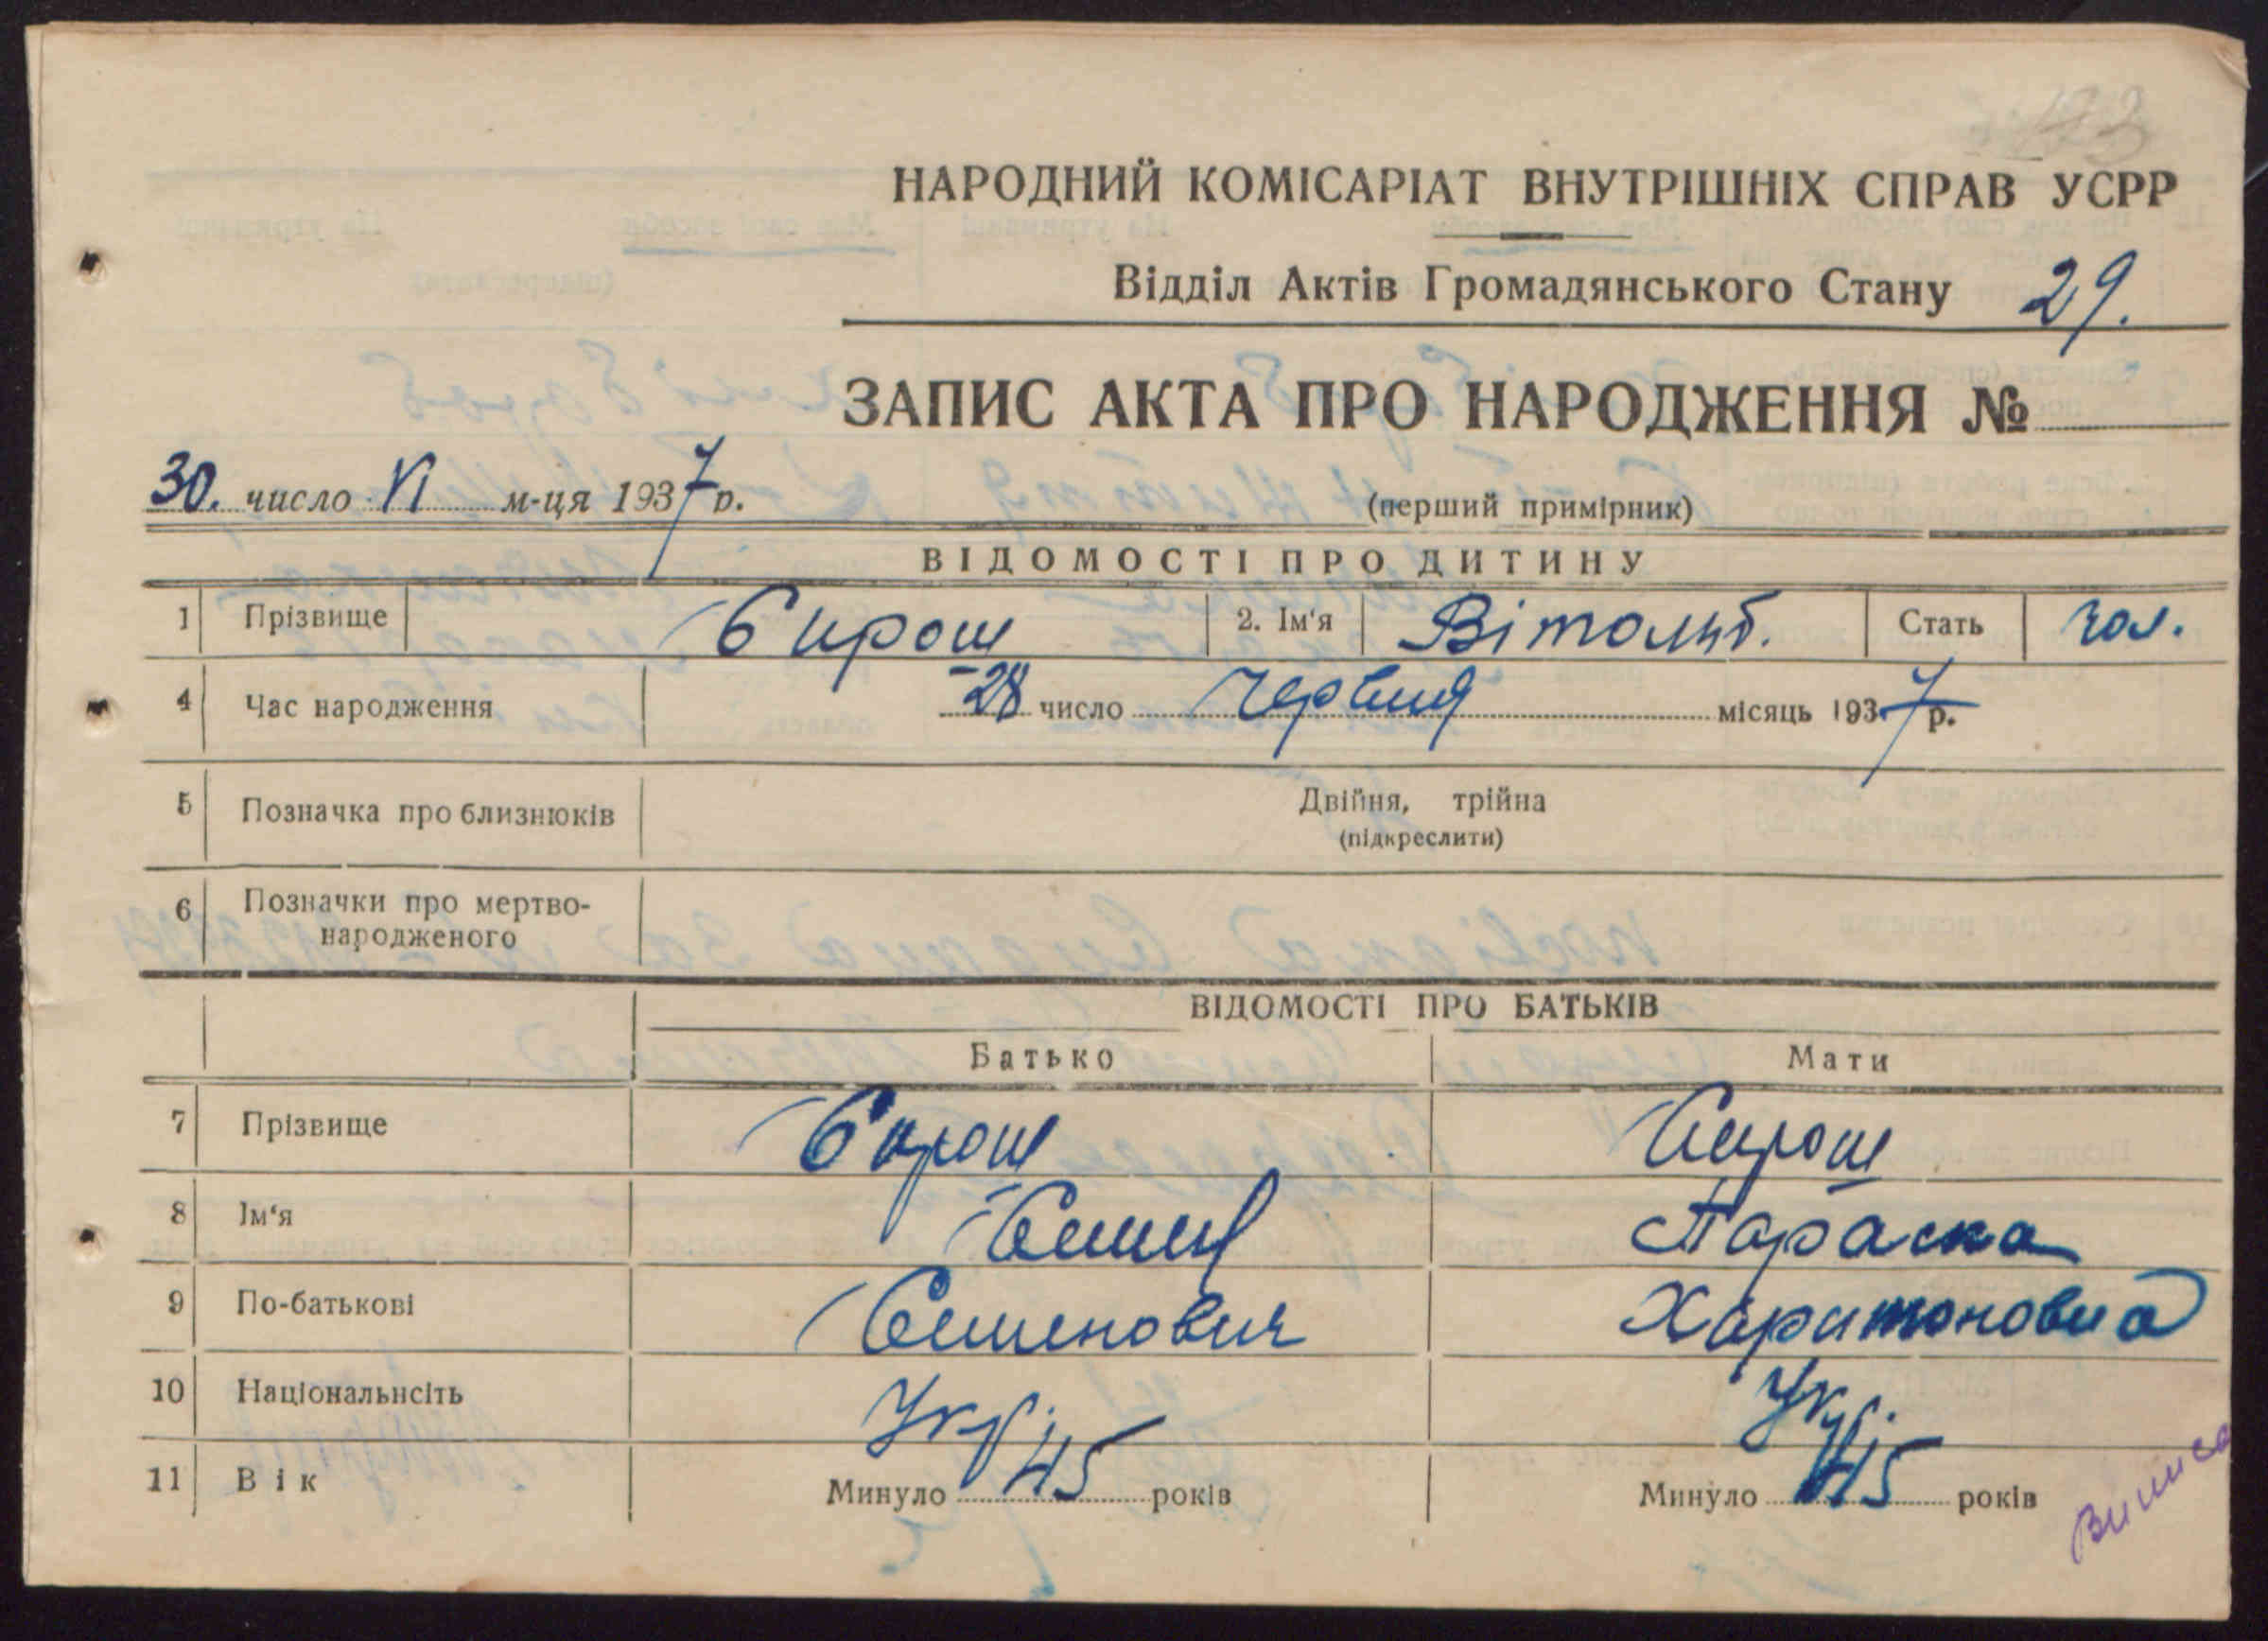 НАРОДНИЙ КОМІСАРІАТ ВНУТРІШНІХ СПРАВ УСРР
Відділ Актів Громадянського Стану 29.
ЗАПИС АКТА ПРО НАРОДЖЕННЯ №
30. число VI м-ця 1937 р.
(перший примірник)
ВІДОМОСТІ ПРО ДИТИНУ
1 Прізвище Сирош 2. Ім'я Стать чол.
4 Час народження 28 число Червня місяць 1937 р.
5 Позначка про близнюків Двійня, трійна
(підкреслити)
6 Позначки про мертво-
народженого
ВІДОМОСТІ ПРО БАТЬКІВ
Батько Мати
7 Прізвище Сирош Сирош
8 Ім'я Семен Параска
9 По-батькові Семенович Харитоновна
10 Національнсіть Укр. Укр.
11 Вік Минуло 45 років Минуло 45 років